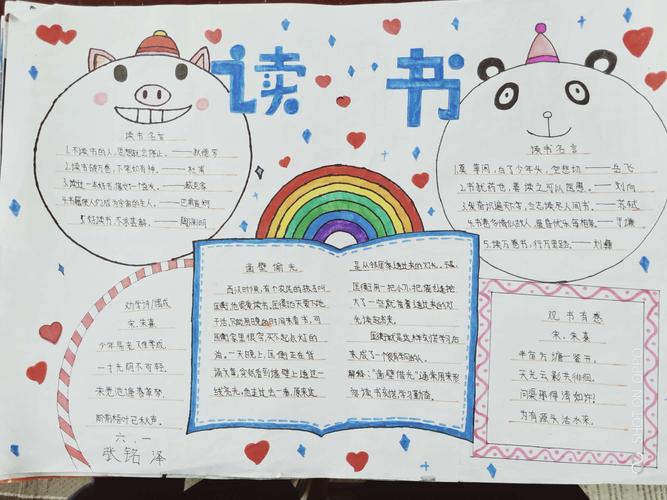 读书
读书名言
1.不读书的人,思想就会停止。——狄德罗
2.读书破万卷,下笔如有神。——杜甫
3.读过一本好书,像交了一个益友。——臧克家
4.书籍使人们成为宇宙的主人。——巴甫连柯
5.好读书,不求甚解。——陶渊明
读书名言
1.莫等闲,白了少年头,空悲切——岳飞
2.书犹药也,善读之可以医愚。——刘向
3.发奋识遍天下字,立志读尽人间书。——苏轼
4.书卷多情似故人,晨昏忧乐每相亲。——于谦
5.读万卷书,行万里路。——刘彝
凿壁偷光
西汉时候,有个农民的孩子叫
匡衡他很爱读书,匡衡
干活,只能用晚
匡衡家里很穷,买不起点灯的
油,一天晚上,匡衡正在
墙壁上透过一
线亮光,他走过去一看,原来
是从邻居家透过来的灯光,于是,
匡衡用一把小刀,把墙缝挖
大了一些就着透过来的灯
光读起书来。
匡衡就是这样刻苦学习后
来成了一个很有学问的人。
解释:"凿壁借光"通常用来形
容读书刻苦,学习勤奋。
劝学诗/偶成
宋·朱熹
少年易老学难成
一寸光阴不可轻
未觉池塘春草梦
阶前梧叶已秋声。
观书有感
宋·朱熹
半亩方塘一鉴开,
天光云影共徘徊。
问渠那得清如许?
为有源头活水来。
六.一
张铭泽
SHOT ON OPPO